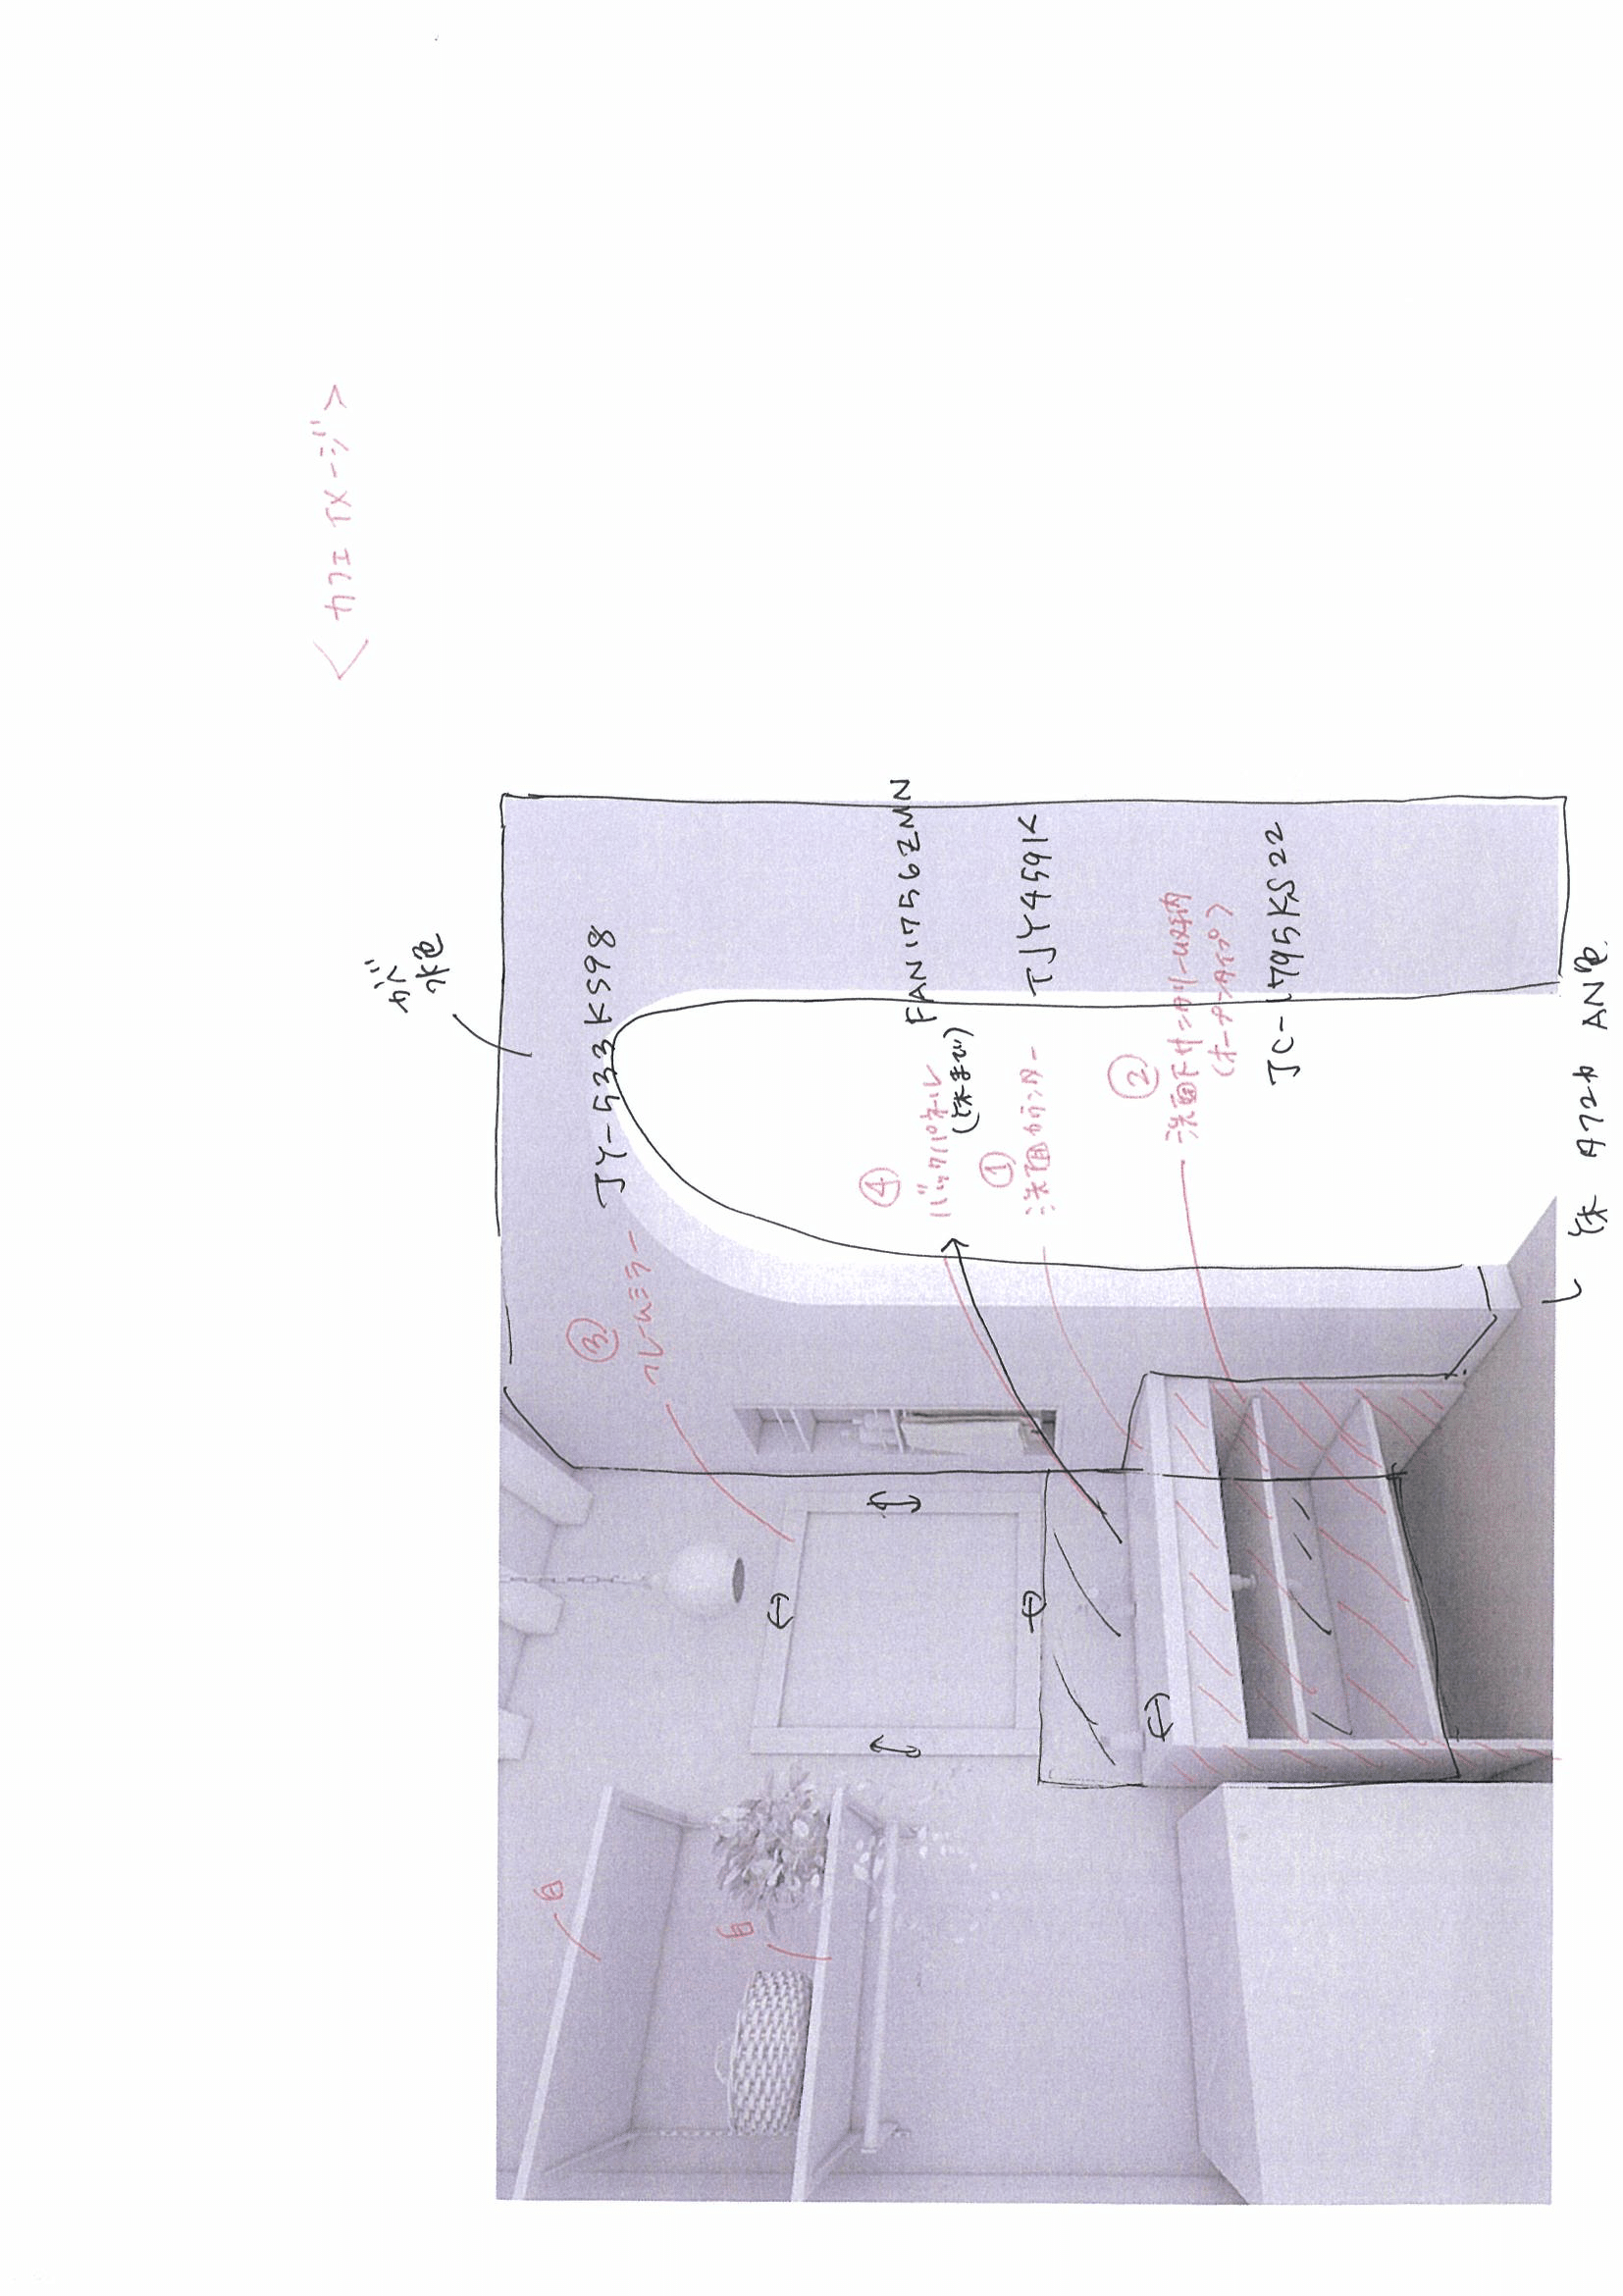 <カフェイメージ>
かべ
水色
③
フレームミラー
JY-533KS98
④
バックパネル
(床まで)
FAN1756ZMN
①
洗面カウンター
TJY4591K
②
洗面下サンカクリーム対内
(オープンタイプ)
JC-1795KS22
白
白
床 タフカ AN色